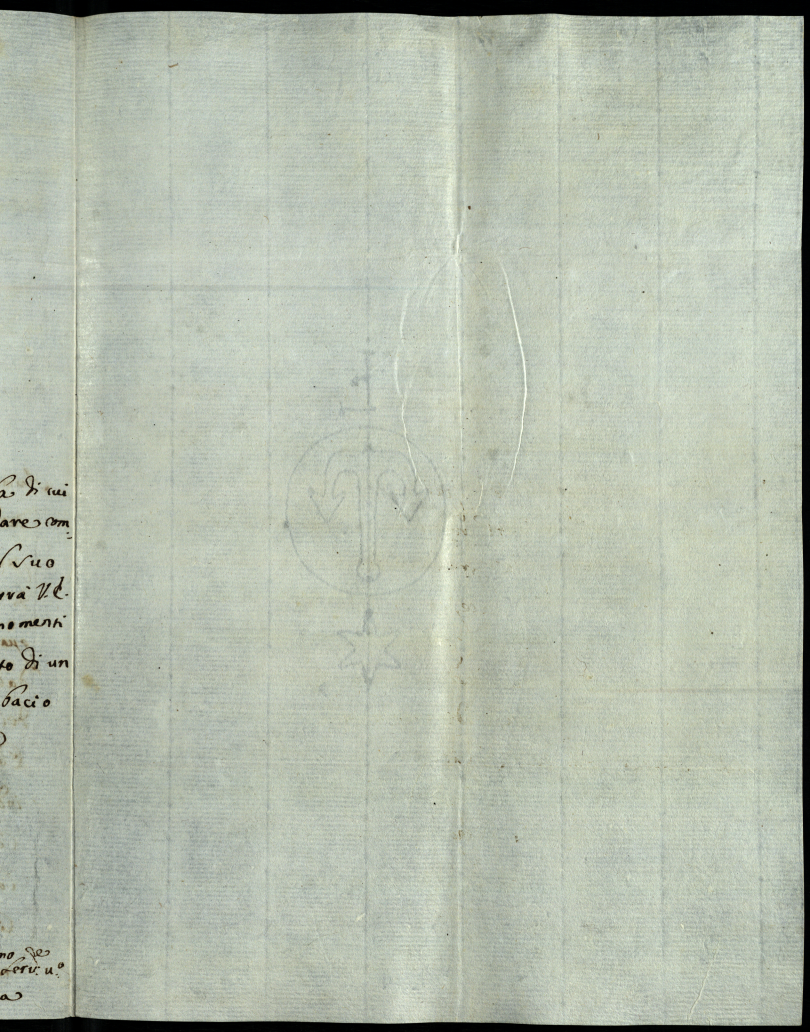 a di cui
dare com=
suo
rà V.E.
momenti
to di un
bacio
mo De
Serv: u.º
a